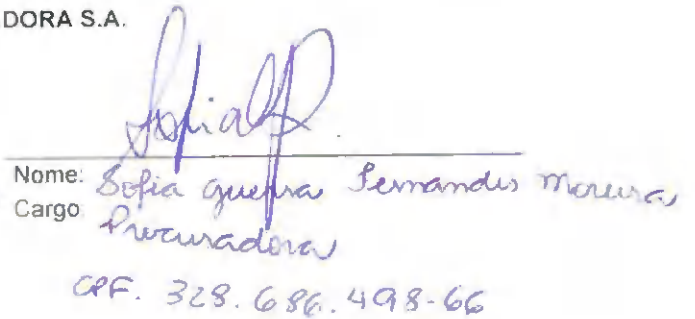 DORA S.A.
Nome: Sofia Guerra Fernandes Moreira
Cargo Procuradora
CPF. 328.686.498-66